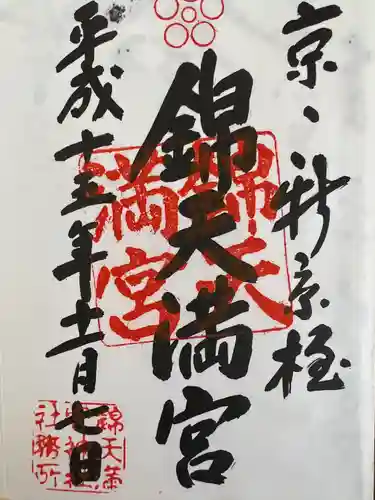 京、新京極
錦天満宮
平成十五年十一月七日
錦天
満宮
錦天満
社務所